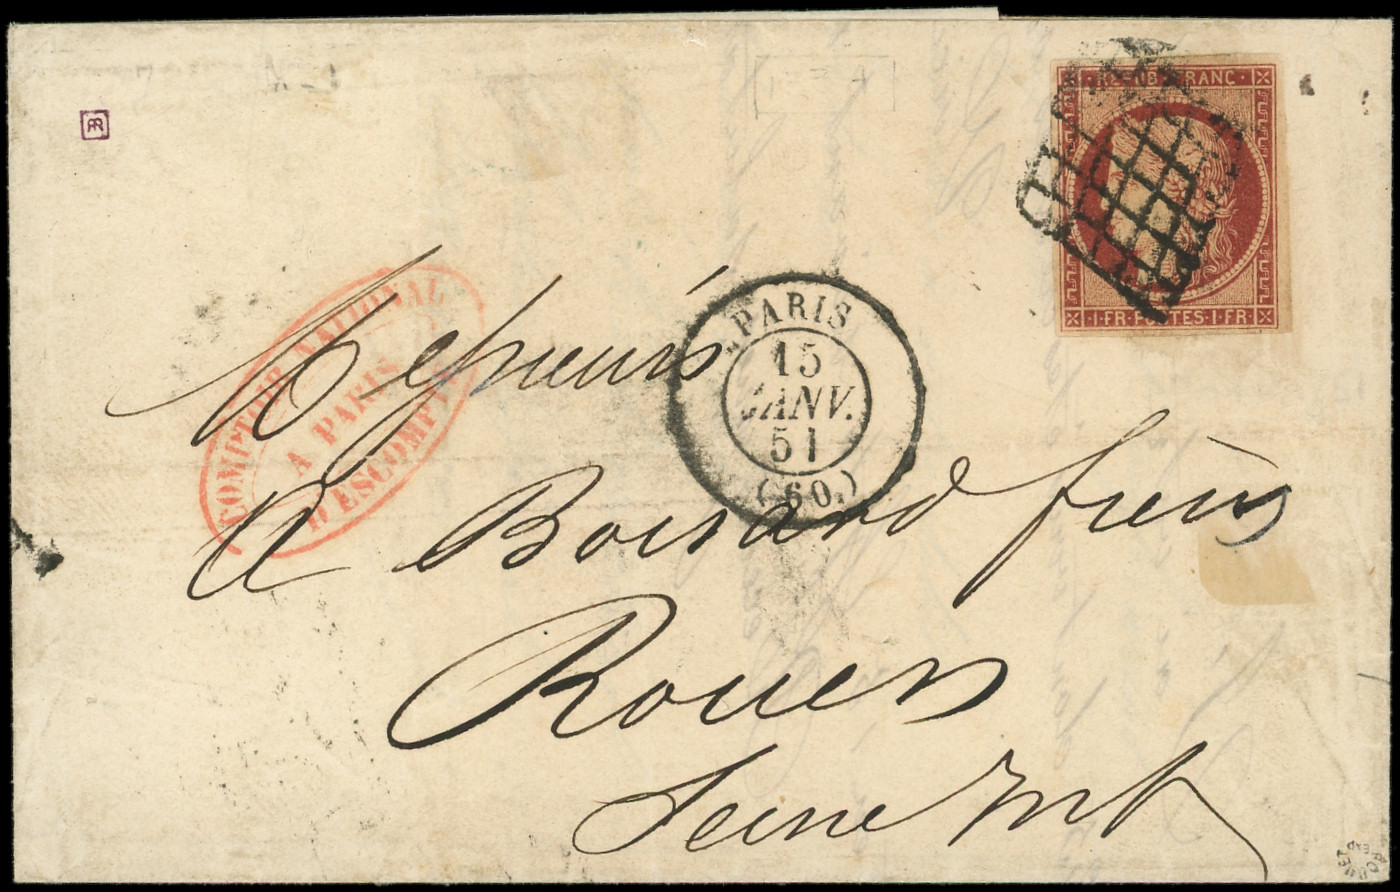 REPUB. FRANC.
1·FR·POSTES·1·FR·
COMPTOIR NATIONAL
A PARIS
D'ESCOMPTE
PARIS
15
JANV.
51
(60.)
Messieurs
A Boisard frères
Rouen
Seine Infre